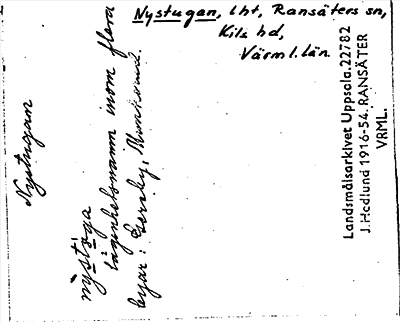 Nystugan, lht, Ransäters sn,
Kils hd,
Värml. län.
Nystugan
nỳstö̀ga
lägenhetsnamn inom flera
byar: Gersby, Munkerud.
Landsmålsarkivet Uppsala. 22782
J. Hedlund 1916-54. RANSÄTER
VRML.